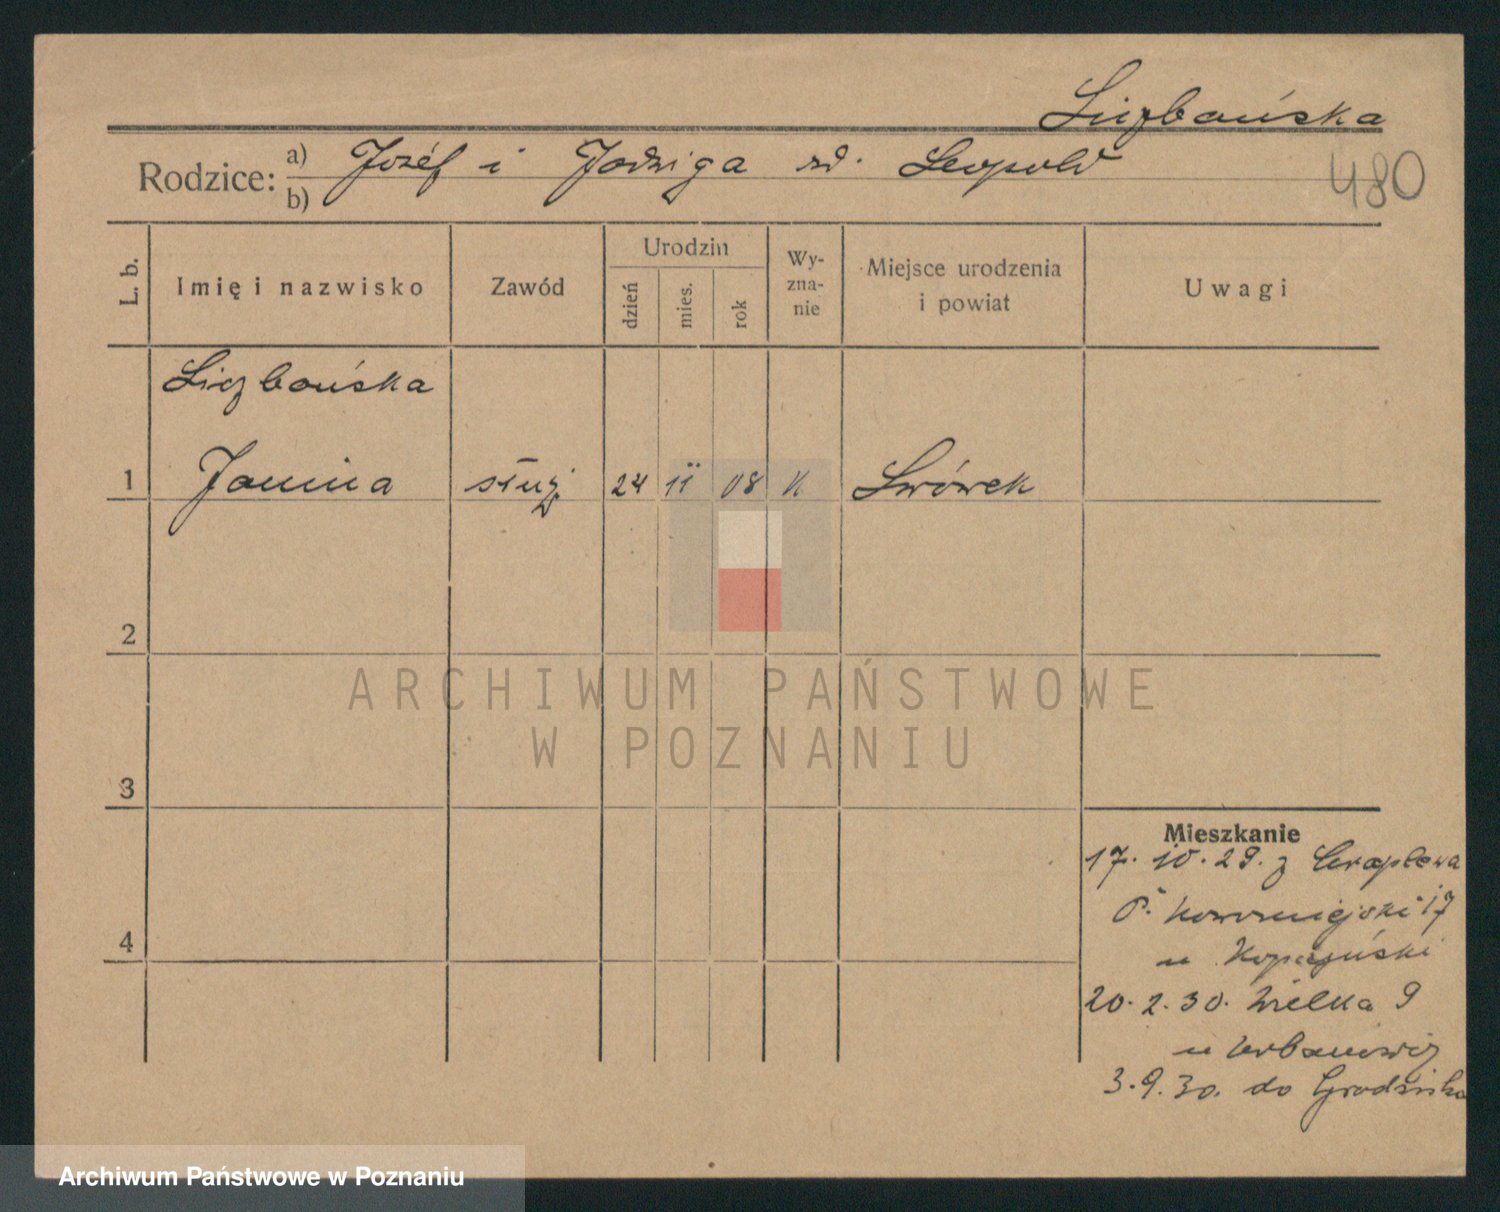 Liczbańska
Rodzice: a) Józéf i Jadwiga zd. Leopold
b)
480
L. b.
Imię i nazwisko
Zawód
Urodzin
dzień
mies.
rok
Wy-
zna-
nie
Miejsce urodzenia
i powiat
Uwagi
Liczbańska
1 Janina służ. 24 11 08 K Lwówek
2
3
4
Mieszkanie
17. 10. 29. z
17
u
20. 2. 30. Wielka 9
u Urbanowicz
3. 9. 30. do Grodziska
ARCHIWUM PAŃSTWOWE
W POZNANIU
Archiwum Państwowe w Poznaniu